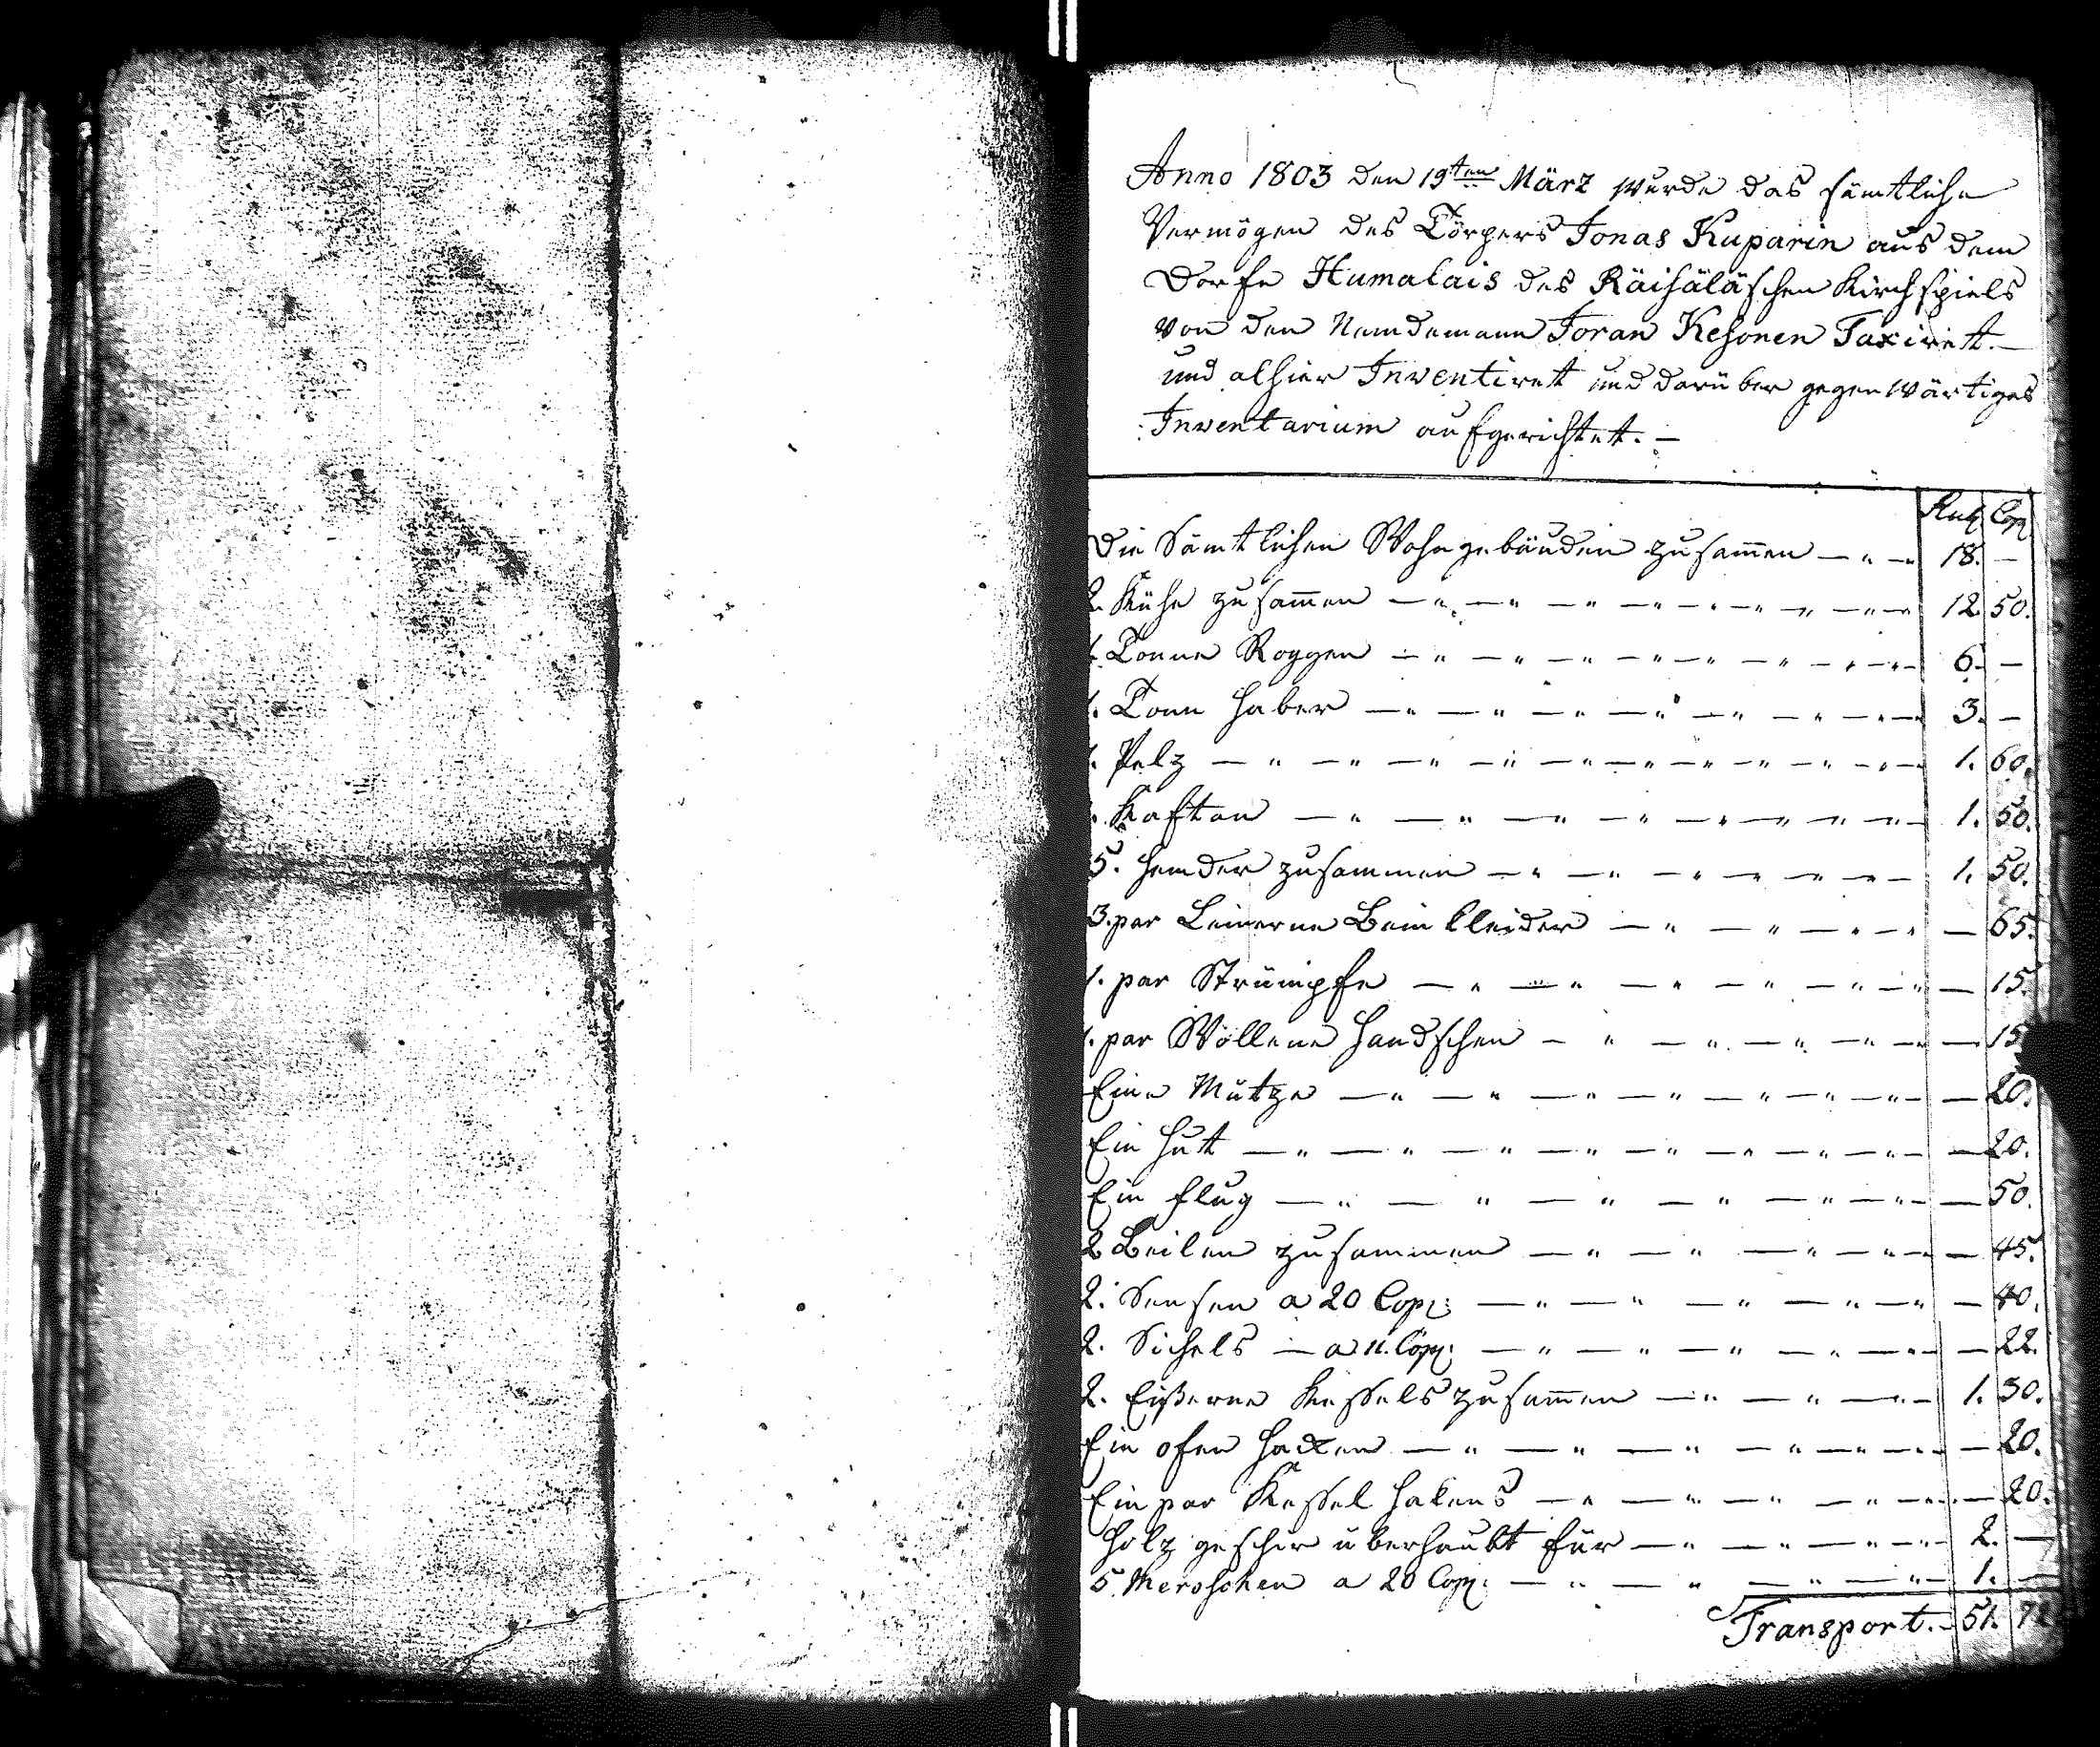 Anno 1803 den 19ten März wurde das sämtliche
Vermögen des Törpers Jonas Kuparin aus dem
Dorfe Humalais des Räisäläschen Kirchspiels
von den Nemdemann Joran Kesonen Taxirett.
und alhier Inventirett und darüber gegenwärtiges
Inventarium aufgerichtet.
Rub Cop
Die Sämtlichen Wohngebäuden zusam̄en 18. —
2. Kühe zusam̄en 12 50.
1. Tonne Roggen 6. —
1. Tonn Haber 3. —
1. Pelz 1. 60.
1. Kaftan 1. 50.
5. Hemder zusammen 1. 50.
3. par Leinerne Beinkleider — 65.
1. par Strümpfe — 15.
1. par Wollene Handschen — 15
Eine Mütze — 20.
Ein Hutt — 20.
Ein Flug — 50.
2 Beilen zusammen — 45.
2. Sensen a 20 Cop: — 40.
2. Sichels — a 11. Cop: — 22.
2. Eißerne Kessels zusam̄en 1. 30.
Ein ofen Hacken — 20.
Ein par Kessel Hakens — 20.
Holz geschir überhaubt für 2. —
5 Meroschen a 20 Cop: 1. —
Transport. 51. 72